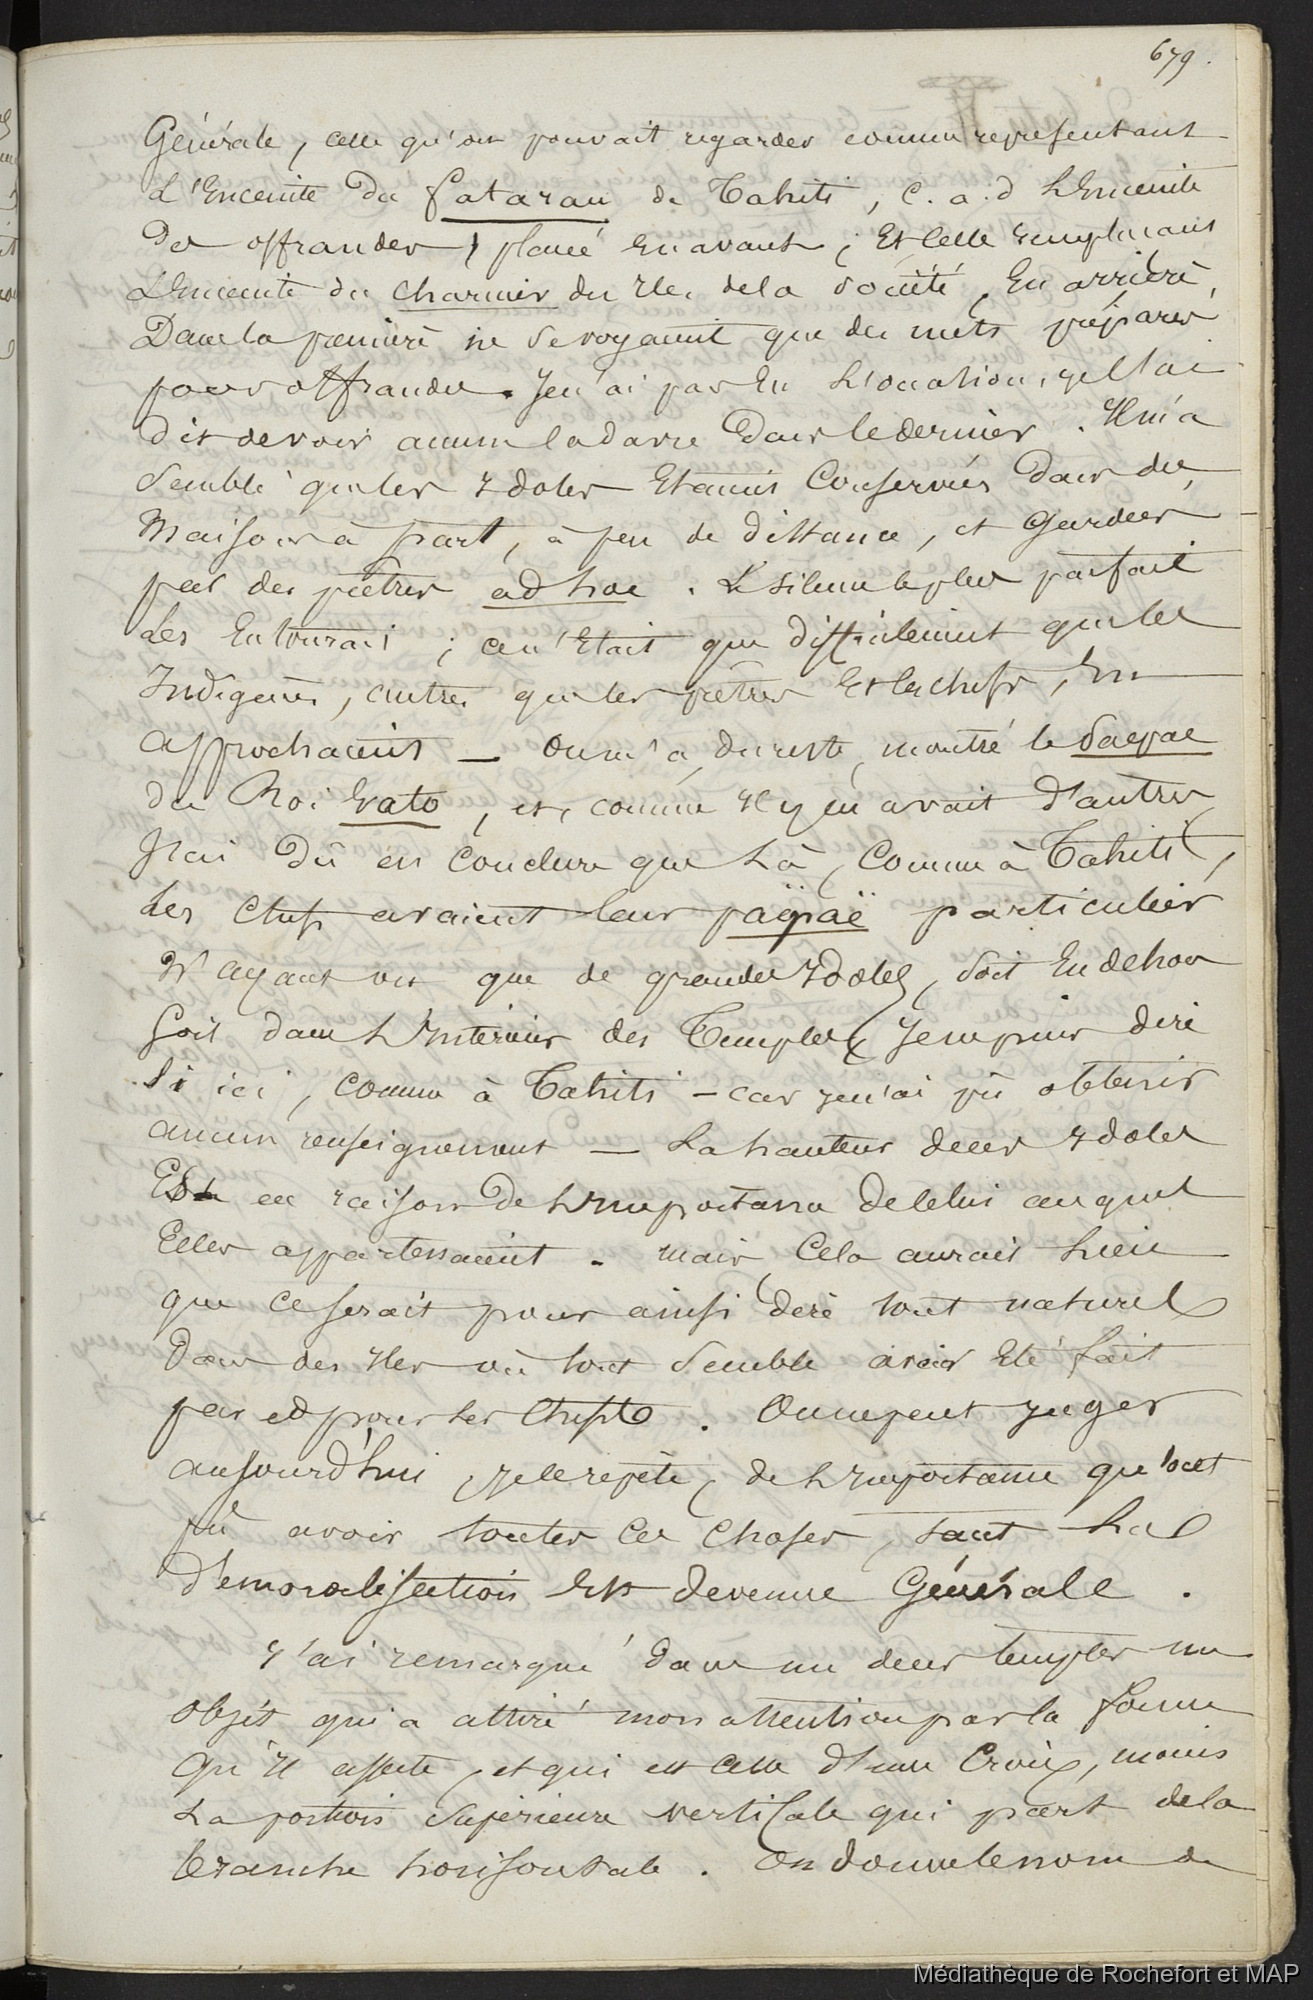 679.
Générale, celle qu'on pouvait regarder comme representant
L'Enceinte du fatarau de Tahiti, c. a. d L'Enceinte
des offrandes, placé en avant; Et celle remplacant
L'Enceinte du charnier des Iles de la Société, En arrière,
Dans la première ne se voyaient que des mets préparés
pour offrandes. Je n'ai pas Eu L'occasion, je l'ai
dit de voir aucun cadavre Dans le dernier. Il m'a
semblé que les Idoles Etaient Conservées Dans des
Maisons à part, à peu de distance, et Gardées
par des prêtres ad hoc. Le silence le plus parfait
Les Entourait; ce n'Etait que difficilement que les
Indigènes, autres que les prêtres Et les chefs, En
approchaient — On m'a, du reste, montré le paepae
du Roi Eato, et, comme Il y en avait d'autres
J'ai Dû en Conclure que Là, Comme à Tahiti,
Les Chefs avaient leur païpaë particulier
N'ayant vu que de grandes Idoles, soit En dehors
Soit dans L'Intérieur des Temples, Je ne puis dire
Si ici, Comme à Tahiti — car je n'ai pû obtenir
aucun renseignement — La hauteur de ces Idoles
Est en raison de L'Importance de Celui auquel
Elles appartenaient. mais, Cela aurait lieu
que ce serait pour ainsi dire tout naturel
Dans des Iles où tout semble avoir Eté fait
par et pour Les Chefs. On ne peut Juger
aujourd'hui, Je le répète, de L'Importance qu'ont
pû avoir toutes Ces Choses, tant La
Démoralisation Est devenue Générale.
J'ai remarqué dans un de ces temples un
objet qui a attiré mon attention par la forme
qu'Il affecte, et qui est Celle d'une Croix, moins
La portion Supérieure verticale qui part de la
branche horisontale. On donne le nom de
Médiathèque de Rochefort et MAP